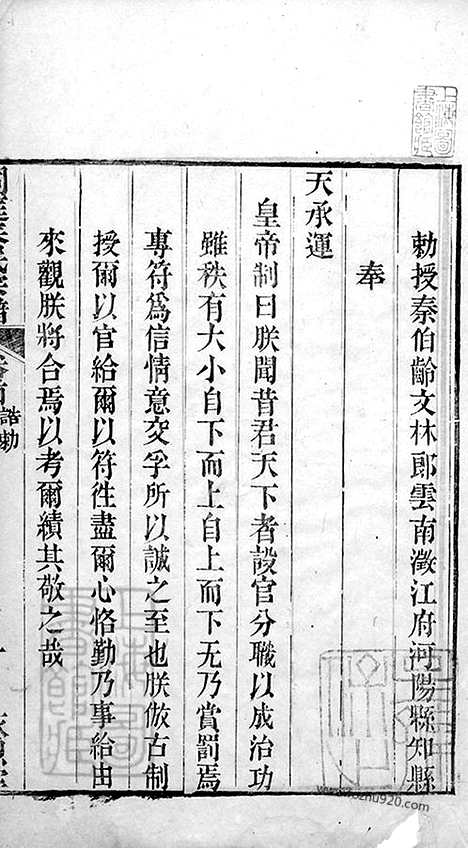 勅授秦伯齡文林郎雲南澂江府河陽縣知縣
奉
天承運
皇帝制曰朕聞昔君天下者設官分職以成治功
雖秩有大小自下而上自上而下无乃賞罰焉
專符爲信情意交孚所以誠之至也朕倣古制
授爾以官給爾以符徃盡爾心恪勤乃事給由
來觀朕將合焉以考爾績其敬之哉
誥勅
上海圖書館藏